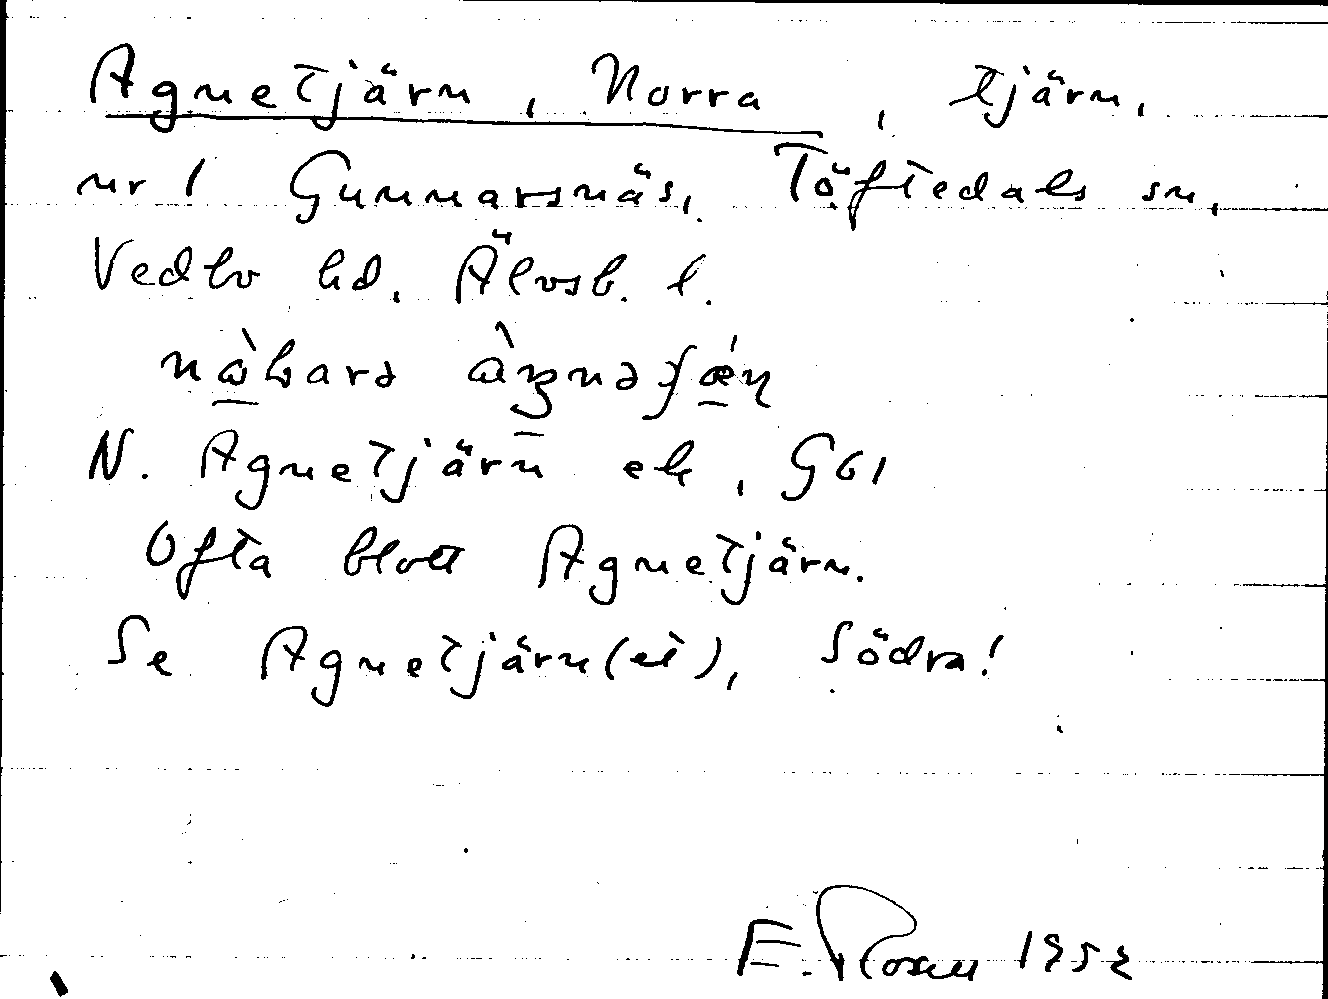 Agnetjärn, Norra, tjärn,
nr 1 Gunnarsnäs, Töftedals sn,
Vedbo hd, Älvsb. l.
N. Agnetjärn ek, G61
Ofta blott Agnetjärn.
Se Agnetjärn(et), Södra!
E. Rosen 1952